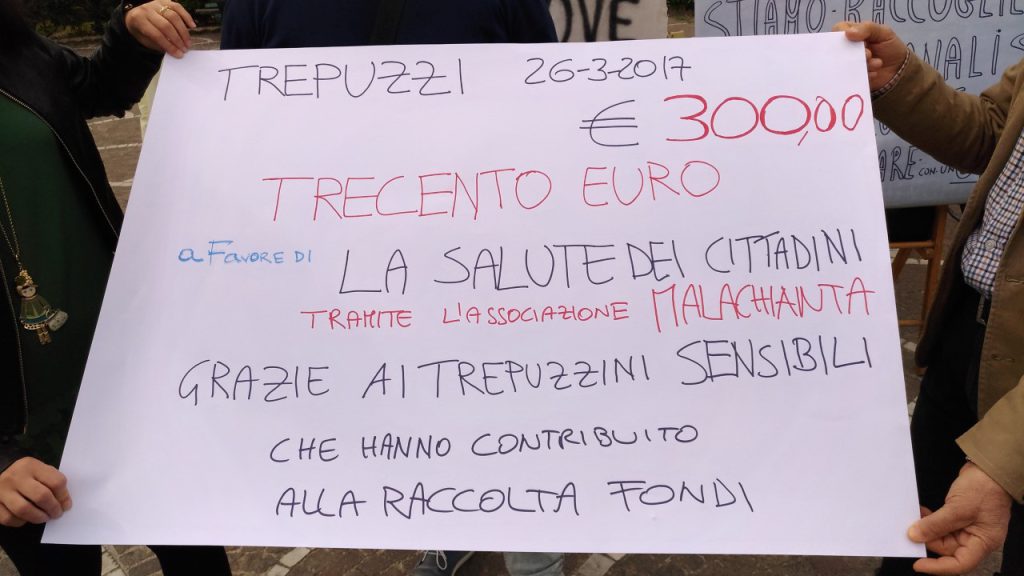 TREPUZZI 26-3-2017
€ 300,00
TRECENTO EURO
a FAVORE DI LA SALUTE DEI CITTADINI
TRAMITE L'ASSOCIAZIONE MALACHIANTA
GRAZIE AI TREPUZZINI SENSIBILI
CHE HANNO CONTRIBUITO
ALLA RACCOLTA FONDI
OVE
STIAMO RACCOGLIE
NALIS
ARE CON UN